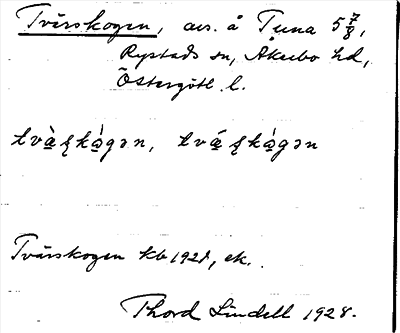 Tvärskogen, avs. å Tuna 5 7/8,
Rystads sn, Åkerbo hd,
Östergötl. l.
tvà̱ʂkà̱gən, tvá̱ʂkà̱gən
Tvärskogen kb 1921, ek.
Thord Lindell 1928.